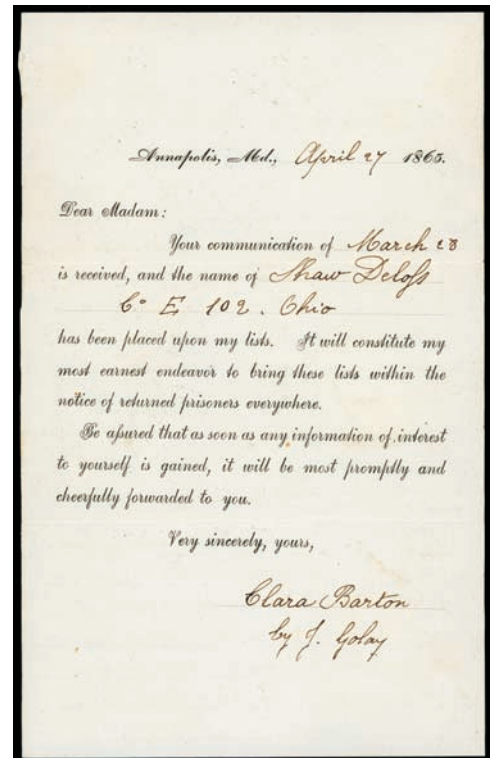 Annapolis, Md., April 27 1865.
Dear Madam:
Your communication of March 28
is received, and the name of Shaw Deloſs
Co E 102. Ohio
has been placed upon my lists. It will constitute my
most earnest endeavor to bring these lists within the
notice of returned prisoners everywhere.
Be aſsured that as soon as any information of interest
to yourself is gained, it will be most promptly and
cheerfully forwarded to you.
Very sincerely, yours,
Clara Barton
by J. Golay